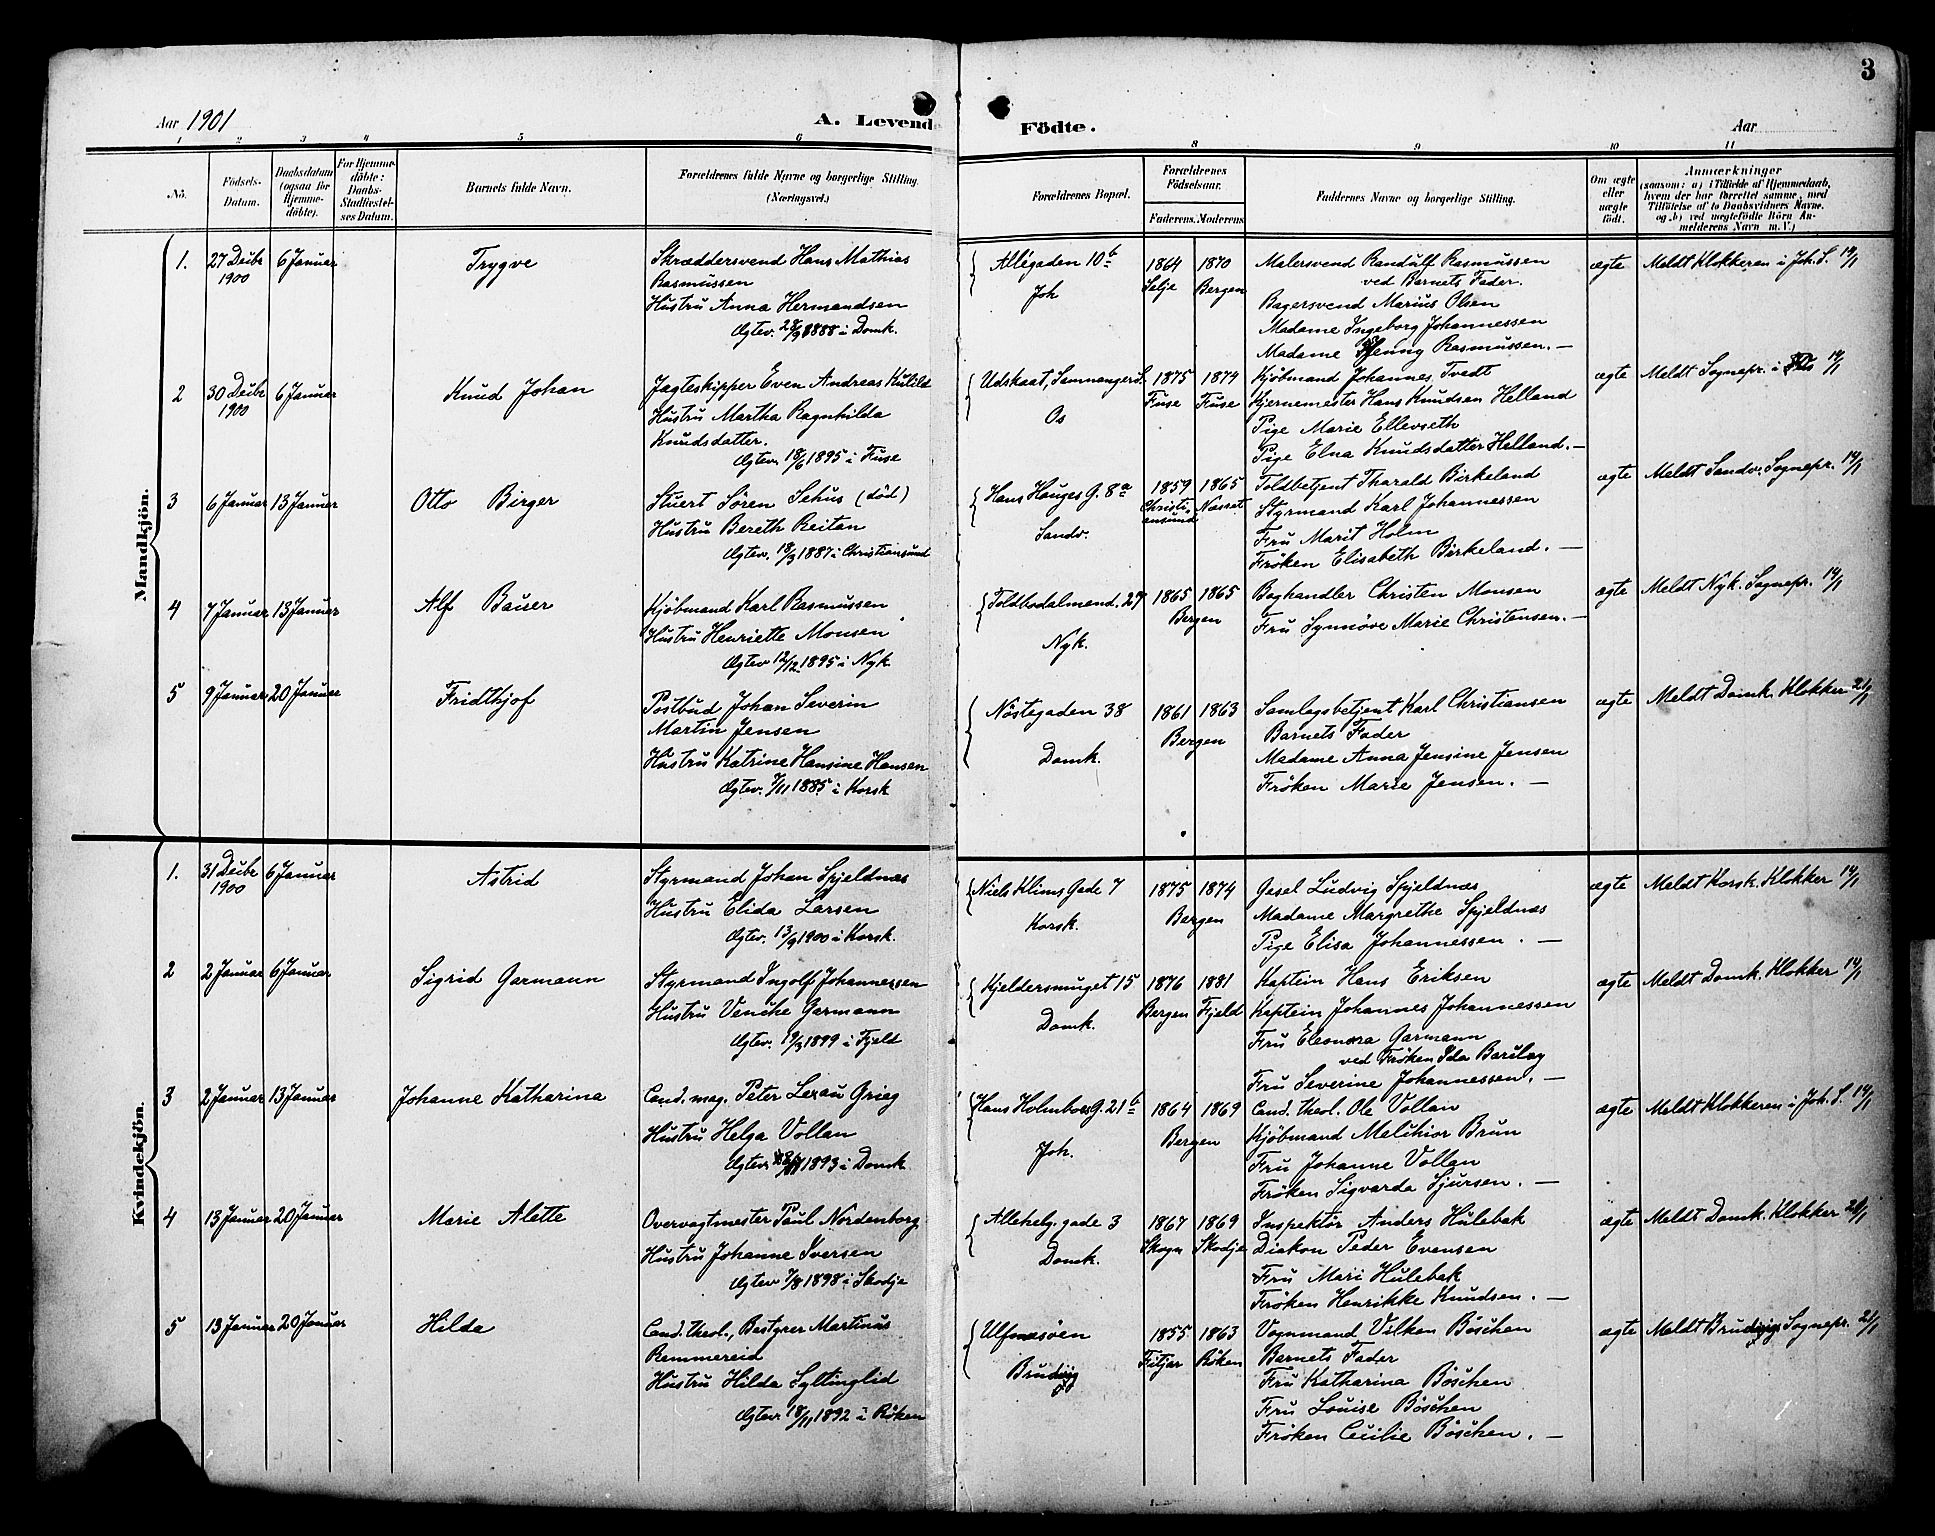 3
Aar 1901
A. Levende
Födte.
Aar
1 2 3 4 5 6 8 9 10 11
No.
Födsels-
Datum.
Daabsdatum
(ogsaa for
Hjemme-
döbte).
For Hjemme-
döbte:
Daabs-
Stadfæstel-
ses Datum.
Barnets fulde Navn.
Forældrenes fulde Navne og borgerlige Stilling.
(Næringsvei.)
Forældrenes Bopæl.
Forældrenes
Födselsaar.
Faderens. Moderens.
Faddernes Navne og borgerlige Stilling.
Om ægte
eller
uægte
födt.
Anmærkninger
(saasom: a) i Tilfælde af Hjemmedaab,
hvem der har forrettet samme, med
Tilföielse af to Daabsvidners Navne,
og b) ved uægtefödte Börn An-
melderens Navn m. V.)
Mandkjön.
1.
27 Decbr
1900
6 Januar
Trygve
Skræddersvend Hans Mathias
Rasmussen
Hustru Anna Hermandsen
Ægtev. 28/9 1888 i Domk.
Allégaden 10b
Joh
1864
Selje
1870
Bergen
Malersvend Randulf Rasmussen
ved Barnets Fader.
Bagersvend Marius Olsen
Madame Ingeborg Johannessen
Madame Jenny Rasmussen. —
ægte
Meldt Klokkeren i Joh. S. 14/1
2
30 Decbr
1900
6 Januar
Knud Johan
Jagteskipper Even Andreas Kulild
Hustru Martha Ragnhilda
Knudsdatter.
Ægtev. 18/6 1895 i Fuse
Udskaat, Samnanger S.
Os
1875
Fuse
1874
Fuse
Kjøbmand Johannes Tvedt
Kjernemester Hans Knudsen Helland
Pige Marie Ellevseth
Pige Elna Knudsdatter Helland. —
ægte
Meldt Sognepr. i Os 14/1
3
6 Januar
13 Januar
Otto Birger
Stuert Sören Sehus (död)
Hustru Bereth Reitan
Ægtev. 18/3 1887 i Christiansund
Hans Hauges G. 8a
Sandv.
1859
Christi-
ansund
1865
Næsset
Toldbetjent Tharald Birkeland
Styrmand Karl Johannessen
Fru Marit Holm
Frøken Elisabeth Birkeland. —
ægte
Meldt Sandv. Sognepr. 14/1
4
7 Januar
13 Januar
Alf Bauer
Kjöbmand Karl Rasmussen
Hustru Henriette Monsen
Ægtev 12/12 1895 i Nyk.
Toldbodalmend. 27
Nyk.
1865 1865
Bergen
Boghandler Christen Monsen
Fru Synnöve Marie Christensen. —
ægte
Meldt Nyk. Sognepr. 14/1
5
9 Januar
20 Januar
Fridthjof
Postbud Johan Severin
Martin Jensen
Hustru Katrine Hansine Hansen
Ægtev. 7/11 1885 i Korsk
Nöstegaden 38
Domk.
1861 1863
Bergen
Samlagsbetjent Karl Christiansen
Barnets Fader
Madame Anna Jensine Jensen
Frøken Marie Jensen. —
ægte
Meldt Domk. Klokker 21/1
Kvindekjön.
1.
31 Decbr
1900
6 Januar
Astrid
Styrmand Johan Spjeldnæs
Hustru Elida Larsen
Ægtev. 13/9 1900 i Korsk.
Niels Klims Gade 7
Korsk.
1875 1874
Bergen
Gesel Ludvig Spjeldnæs
Madame Margrethe Spjeldnæs
Pige Elisa Johannessen. —
ægte
Meldt Korsk. Klokker 14/1
2
2 Januar
6 Januar
Sigrid Garmann
Styrmand Ingolf Johannessen
Hustru Venche Garmann
Ægtev. 19/3 1899 i Fjeld
Kjeldersmuget 15
Domk.
1876
Bergen
1881
Fjeld
Kaptein Hans Eriksen
Kaptein Johannes Johannessen
Fru Eleonora Garmann
ved Frøken Ida Barclay
Fru Severine Johannessen. —
ægte
Meldt Domk. Klokker 14/1
3
2 Januar
13 Januar
Johanne Katharina
Cand. mag. Peter Lexau Grieg
Hustru Helga Vollan
Ægtev. 1893 i Domk
Hans Holmboes G. 21b
Joh.
1864 1869
Bergen
Cand. theol. Ole Vollan
Kjöbmand Melchior Brun
Fru Johanne Vollan
Frøken Sigvarda Sjursen. —
ægte
Meldt Klokkeren i Joh. S. 14/1
4
13 Januar
20 Januar
Marie Alette
Overvagtmester Paul Nordenborg
Hustru Johanne Iversen
Ægtev 7/8 1898 i Skodje
Allehelg. gade 3
Domk.
1867
Skogn
1869
Skodje
Inspektör Anders Hulebak
Diakon Peder Evensen
Fru Mari Hulebak
Frøken Henrikke Knudsen. —
ægte
Meldt Domk. Klokker 21/1
5
13 Januar
20 Januar
Hilda
Cand. theol., Bestyrer Martinus
Remmereid
Hustru Hilda Syltinglid
Ægtev. 18/11 1892 i Röken
Ulfnæsöen
Brudvig
1855
Fitjar
1863
Röken
Vognmand Vilken Böschen
Barnets Fader
Fru Katharina Böschen
Fru Louise Böschen
Frøken Cecilie Böschen. —
ægte
Meldt Brudvigs Sognepr. 21/1